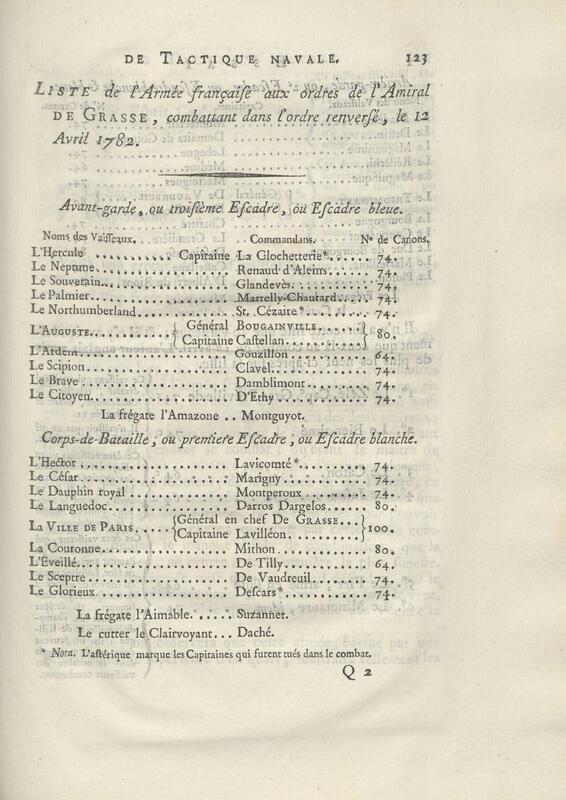 DE TACTIQUE NAVALE. 123
LISTE de l'Armée françaiſe aux ordres de l'Amiral
DE GRASSE, combattant dans l'ordre renverſé, le 12
Avril 1782.
Avant-garde, ou troiſième Eſcadre, ou Eſcadre bleue.
Noms des Vaiſſeaux. Commandans. Nº de Canons.
L'Hercule .......... Capitaine La Glochetterie*...... 74.
Le Neptune .................... Renaud d'Aleins........ 74.
Le Souverain................... Glandevès............. 74.
Le Palmier .................... Martelly-Chautard..... 74.
Le Northumberland.............. St. Cézaire*.......... 74.
L'AUGUSTE........... { Général BOUGAINVILLE...... } 80.
{ Capitaine Caſtellan........ }
L'Ardent....................... Gouzillon............. 64.
Le Scipion..................... Clavel................ 74.
Le Brave....................... Damblimont............ 74.
Le Citoyen..................... D'Ethy................ 74.
La frégate l'Amazone .. Montguyot.
Corps-de-Bataille, ou premiere Eſcadre, ou Eſcadre blanche.
L'Hector ...................... Lavicomté*........... 74.
Le Céſar....................... Marigny............... 74.
Le Dauphin royal .............. Montperoux............ 74.
Le Languedoc................... Darros Dargelos....... 80.
LA VILLE DE PARIS..... { Général en chef DE GRASSE... } 100.
{ Capitaine Lavilléon......... }
La Couronne.................... Mithon................ 80.
L'Éveillé...................... De Tilly.............. 64.
Le Sceptre..................... De Vaudreuil.......... 74.
Le Glorieux.................... Deſcars*.............. 74.
La frégate l'Aimable. ..... Suzannet.
Le cutter le Clairvoyant... Daché.
* Nota. L'aſtérique marque les Capitaines qui furent tués dans le combat.
Q 2